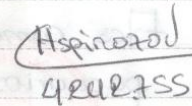 Aspinozad
4242755